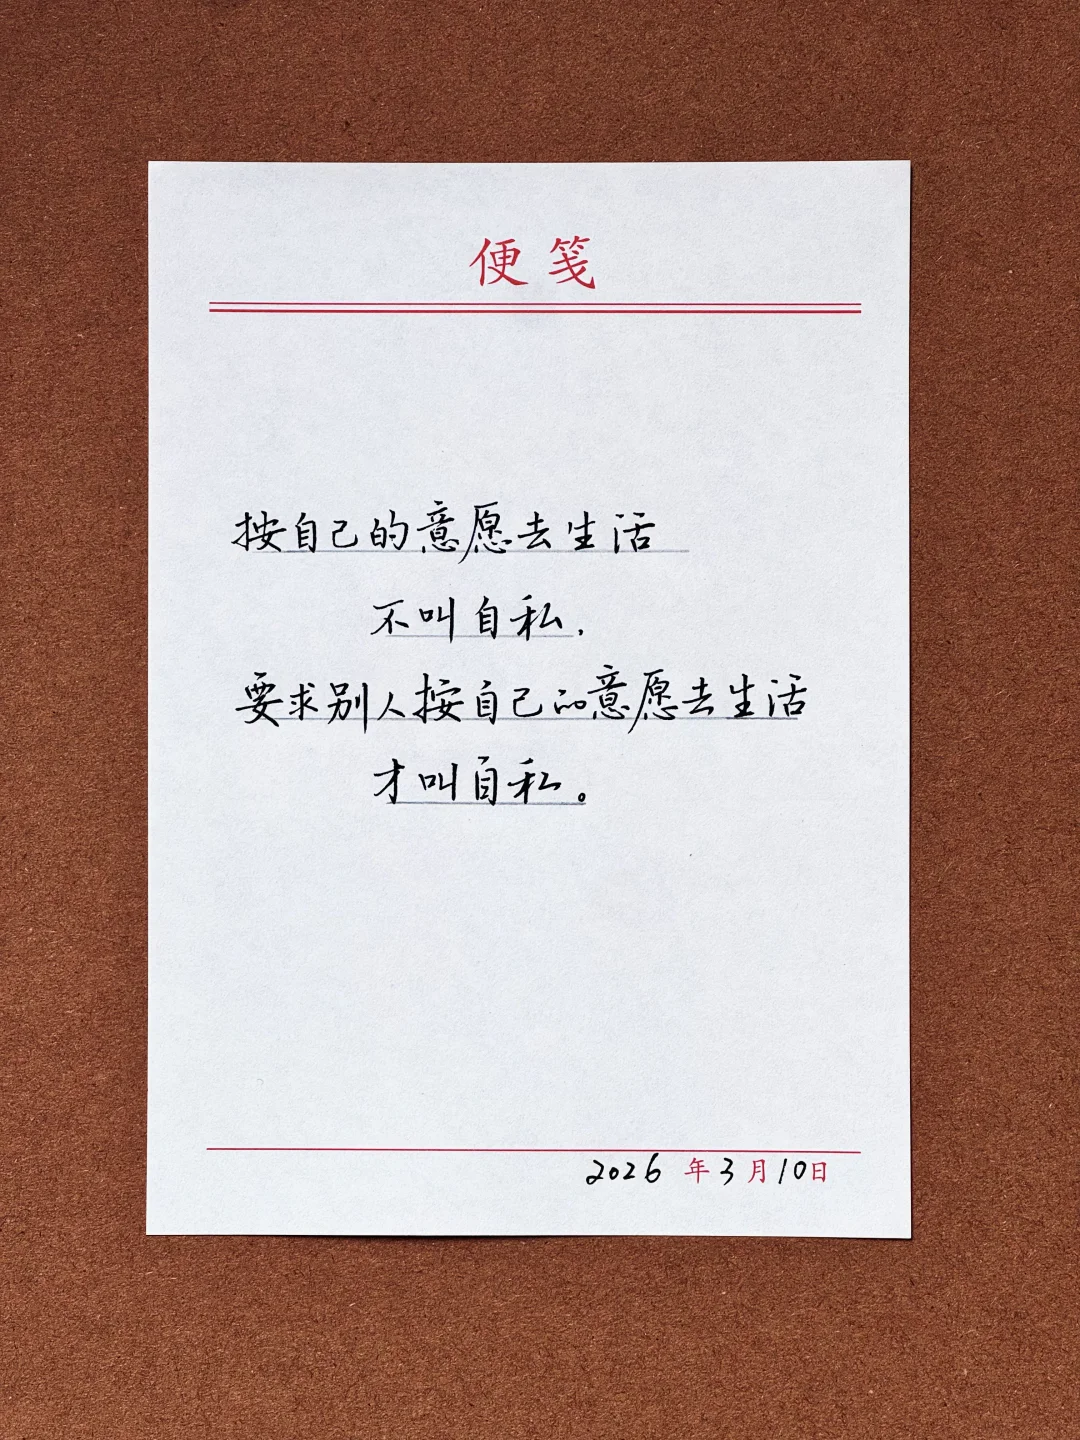 便笺
按自己的意愿去生活
不叫自私，
要求别人按自己的意愿去生活
才叫自私。
2026年3月10日